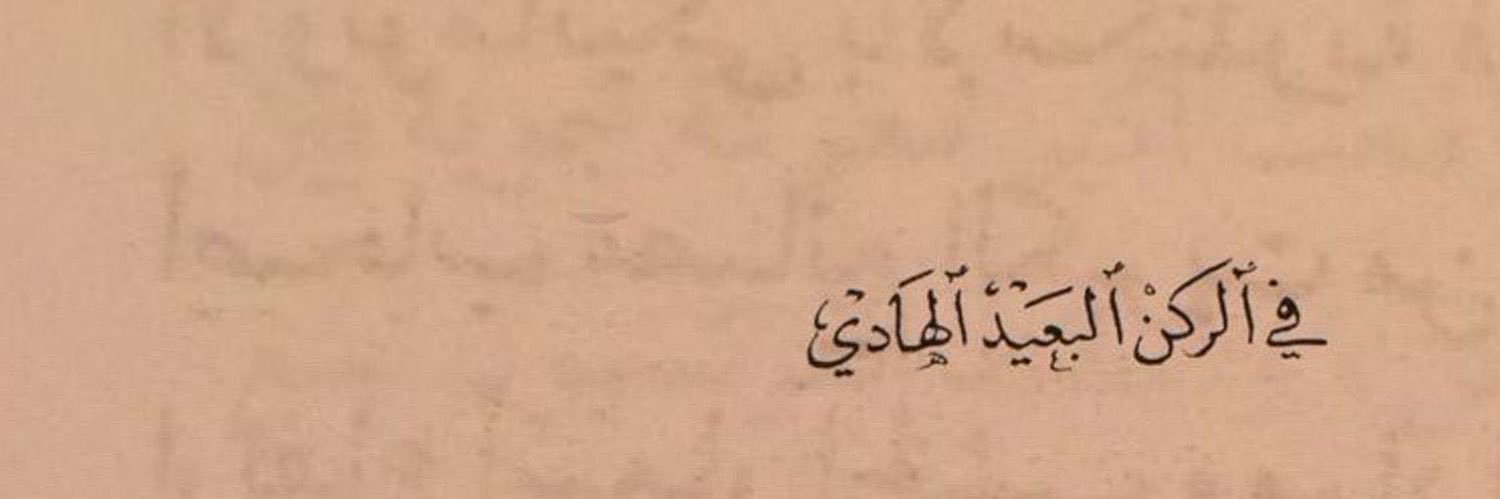 في ٱلركنْ ٱلبَعيدْ ٱلهَادي